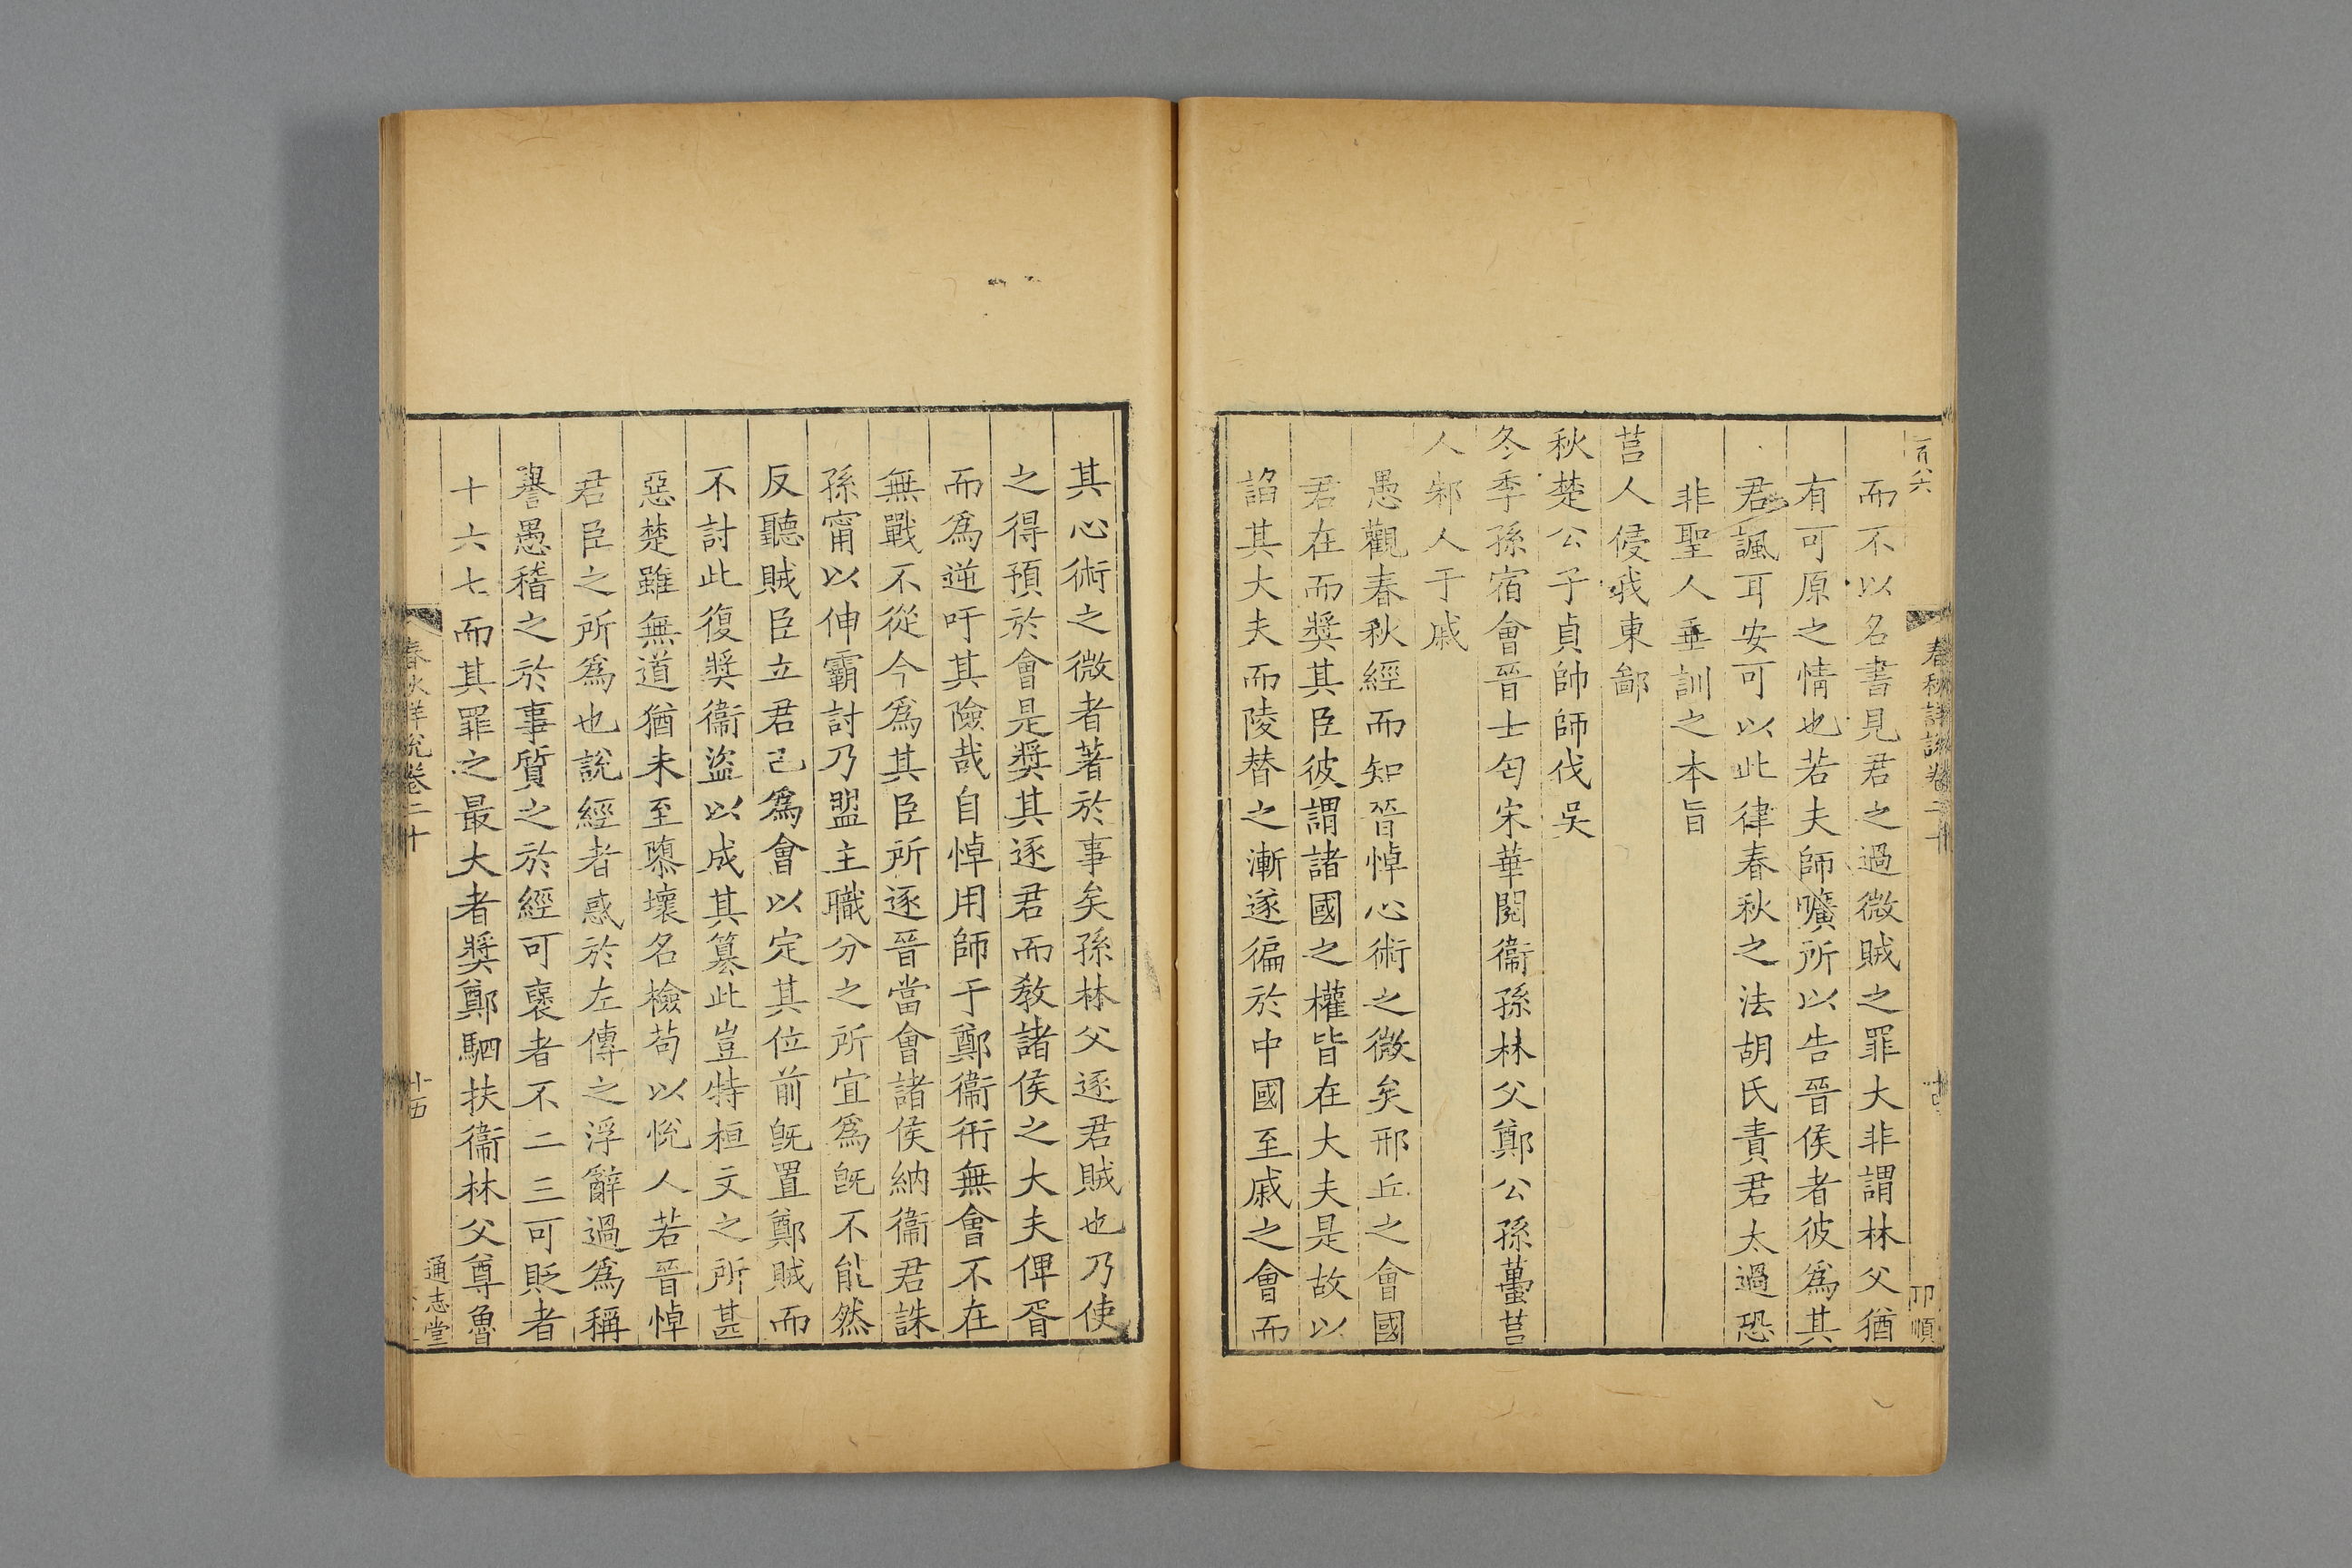 而不以名書見君之過微賊之罪大非謂林父猶
有可原之情也若夫師曠所以告晉侯者彼為其
君諷耳安可以此律春秋之法胡氏責君太過恐
非聖人垂訓之本旨
莒人侵我東鄙
秋楚公子貞帥師伐吳
冬季孫宿會晉士匄宋華閱衞孫林父鄭公孫蠆莒
人邾人于戚
愚觀春秋經而知晉悼心術之微矣邢丘之會國
君在而奬其臣彼謂諸國之權皆在大夫是故以
諂其大夫而陵替之漸遂徧於中國至戚之會而
其心術之微者著於事矣孫林父逐君賊也乃使
之得預於會是奬其逐君而教諸侯之大夫俾胥
而為逆吁其險哉自悼用師于鄭衞衎無會不在
無戰不從今為其臣所逐晉當會諸侯納衞君誅
孫甯以伸霸討乃盟主職分之所宜為旣不能然
反聽賊臣立君己為會以定其位前旣置鄭賊而
不討此復奬衞盜以成其簒此豈特桓文之所甚
惡楚雖無道猶未至隳壞名檢苟以悅人若晉悼
君臣之所為也說經者惑於左傳之浮辭過為稱
譽愚稽之於事質之於經可襃者不二三可貶者
十六七而其罪之最大者奬鄭駟扶衞林父尊魯
春秋詳說卷二十
十五
通志堂